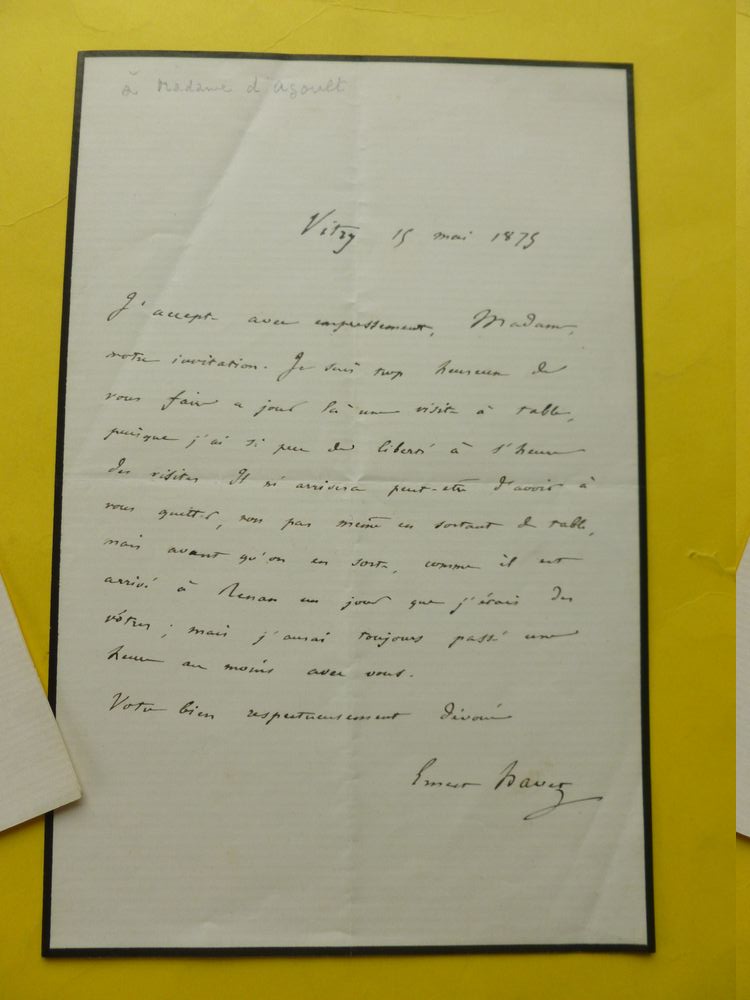 à Madame d'Agoult
Vitzy 15 mai 1875
J'accepte avec empressement, Madame,
votre invitation. Je suis trop heureux de
vous faire ce jour là une visite à table,
puisque j'ai si peu de liberté à l'heure
des visites. Il m'arrivera peut-être d'avoir à
vous quitter, non pas même en sortant de table,
mais avant qu'on en sorte, comme il est
arrivé à Renan un jour que j'étais des
vôtres ; mais j'aurai toujours passé une
heure au moins avec vous.
Votre bien respectueusement dévoué
Ernest Havet